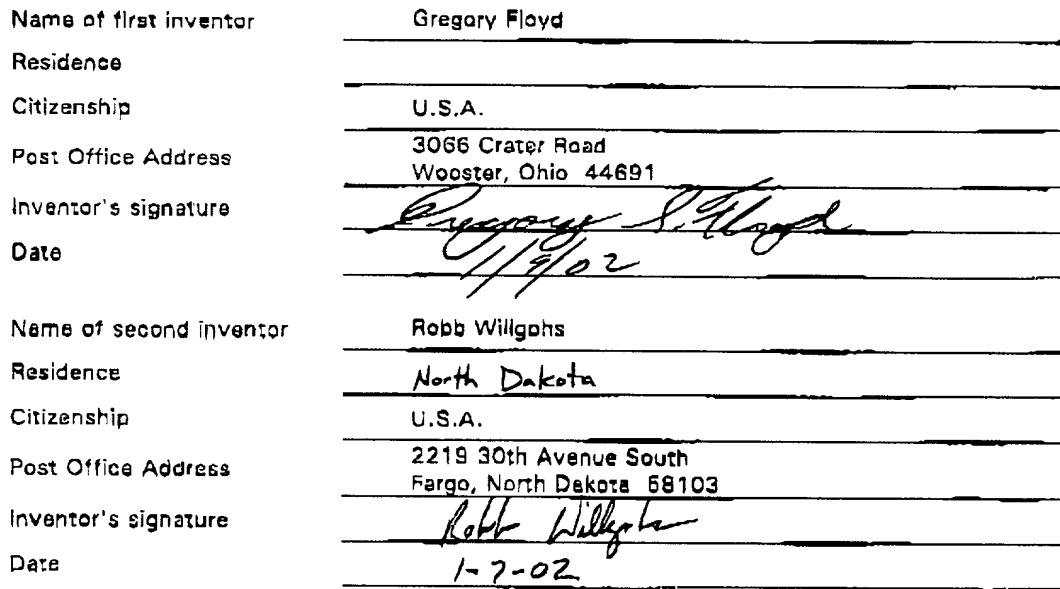 Name of first inventor Gregory Floyd
Residence
Citizenship U.S.A.
Post Office Address 3066 Crater Road
Wooster, Ohio 44691
Inventor's signature Gregory S. Floyd
Date 1/9/02
Name of second inventor Robb Willgohs
Residence North Dakota
Citizenship U.S.A.
Post Office Address 2219 30th Avenue South
Fargo, North Dakota 58103
Inventor's signature Robb Willgohs
Date 1-7-02